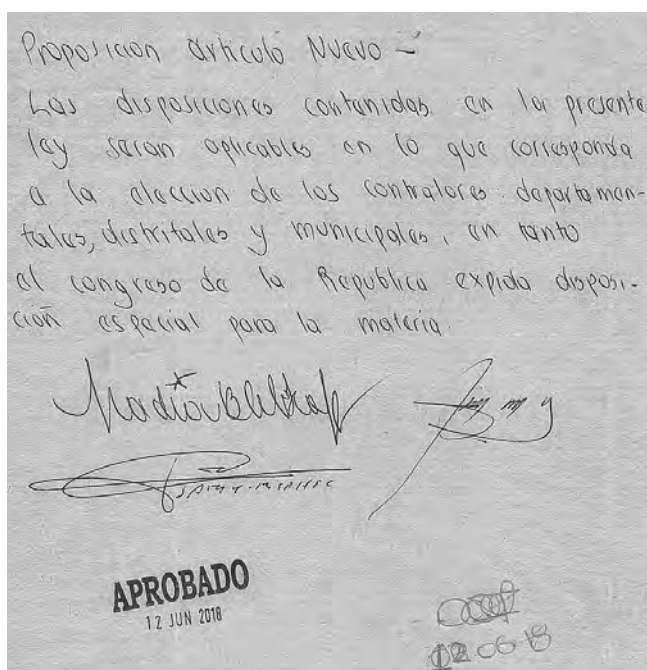 Proposicion articulo Nuevo -
Las disposiciones contenidas en la presente
ley seran aplicables en lo que corresponda
a la eleccion de los contralores departamen-
tales, distritales y municipales, en tanto
el congreso de la Republica expida disposi-
ción especial para la materia.
APROBADO
12 JUN 2018
12 06 18